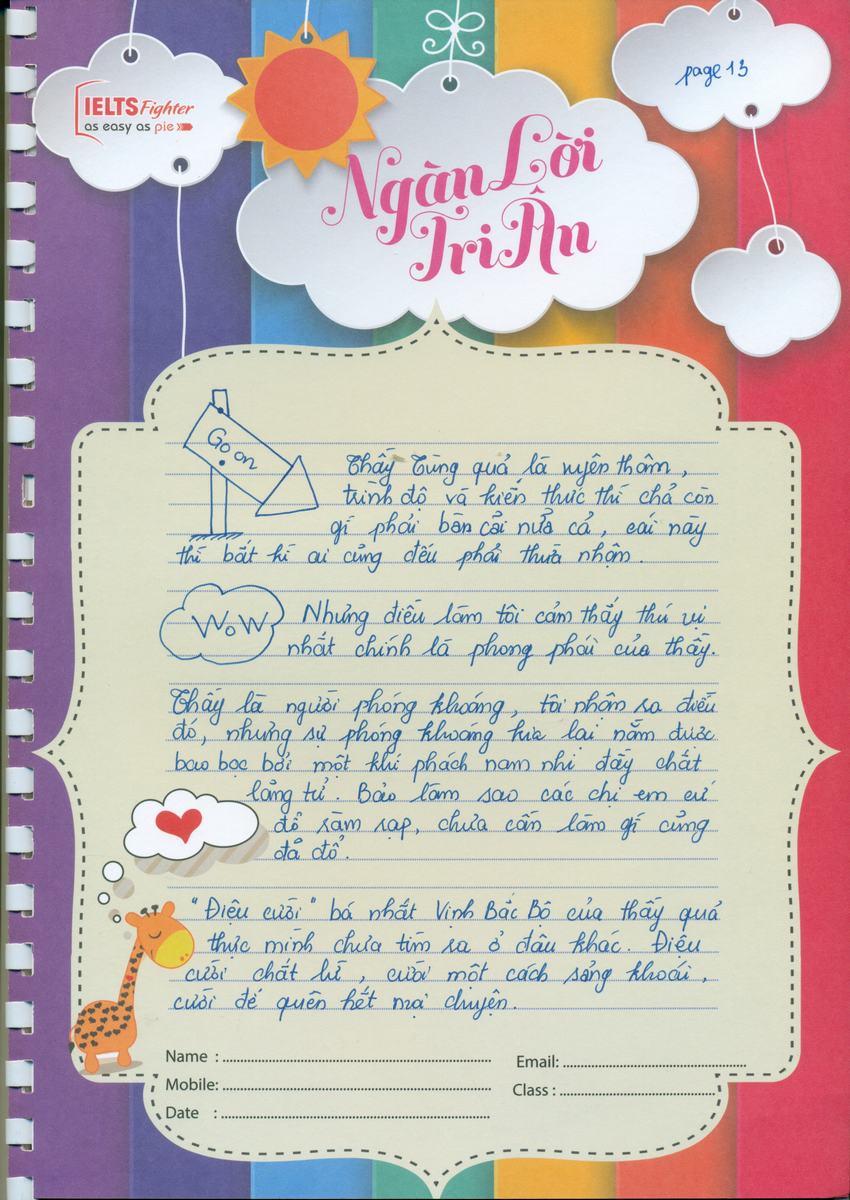 IELTS Fighter
as easy as pie
page 13
Ngàn Lời
Tri Ân
Go on
Thầy Tùng quả là uyên thâm,
trình độ và kiến thức thì chả còn
gì phải bàn cãi nữa cả, cái này
thì bất kì ai cũng đều phải thừa nhận.
WoW
Nhưng điều làm tôi cảm thấy thú vị
nhất chính là phong phái của thầy.
Thầy là người phóng khoáng, tôi nhận ra điều
đó, nhưng sự phóng khoáng kia lại nằm được
bao bọc bởi một khí phách nam nhi đầy chất
lãng tử. Bảo làm sao các chị em cứ
đổ rầm rạp, chưa cần làm gì cũng
đã đổ.
"Điệu cười" bá nhất Vịnh Bắc Bộ của thầy quả
thực mình chưa tìm ra ở đâu khác. Điệu
cười chất lừ, cười một cách sảng khoái,
cười để quên hết mọi chuyện.
Name :
Email:
Mobile:
Class :
Date :